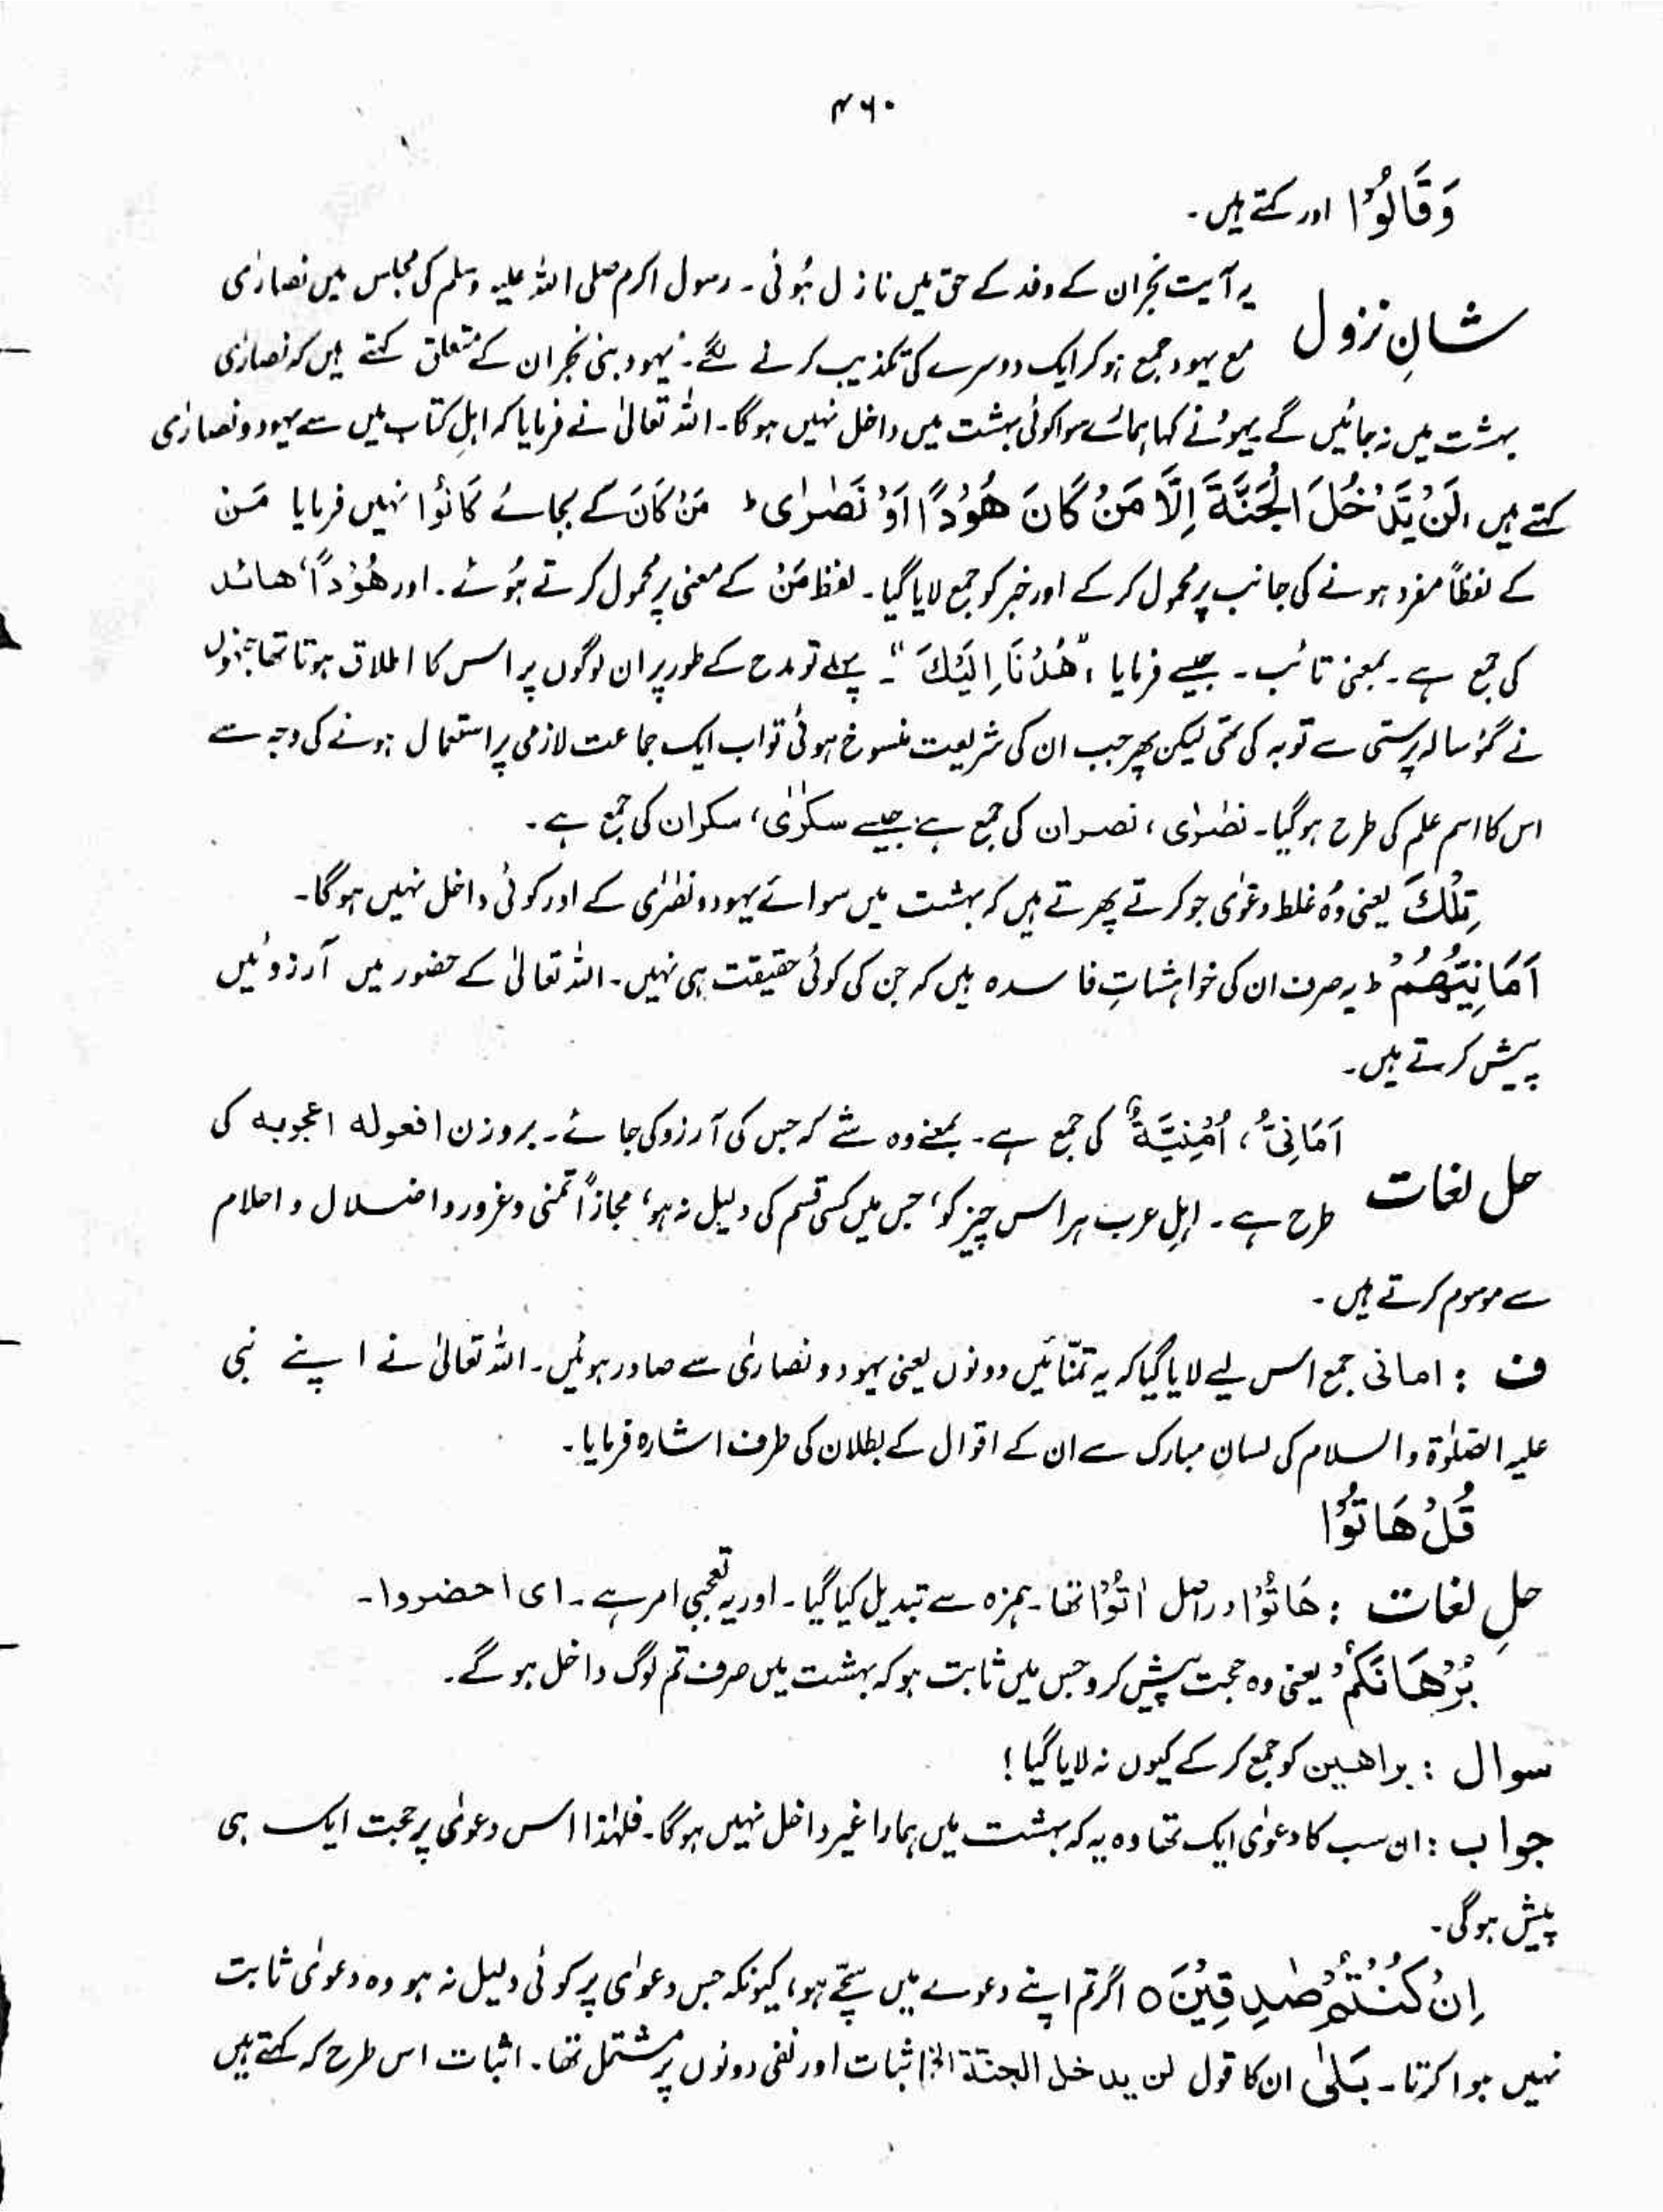 ۴۶۰
وَقَالُوْا اور کہتے ہیں۔
شانِ نزول یہ آیت نجران کے وفد کے حق میں نازل ہُوئی۔ رسول اکرم صلی اللہ علیہ وسلم کی مجلس میں نصارٰی
مع یہود جمع ہو کر ایک دوسرے کی تکذیب کرنے لگے۔ یہود بنی نجران کے متعلق کہتے ہیں کہ نصارٰی
بہشت میں نہ جائیں گے یہود نے کہا ہمارے سوا کوئی بہشت میں داخل نہیں ہوگا۔ اللہ تعالیٰ نے فرمایا کہ اہلِ کتاب میں سے یہود و نصارٰی
کہتے ہیں، لَنْ يَّدْخُلَ الْجَنَّةَ اِلَّا مَنْ كَانَ هُوْدًا اَوْ نَصٰرٰى ط مَنْ كَانَ کے بجائے كَانُوْا نہیں فرمایا مَنْ
کے لفظاً مفرد ہونے کی جانب پر محمول کر کے اور خبر کو جمع لایا گیا۔ لفظ مَنْ کے معنی پر محمول کرتے ہُوئے۔ اور هُوْدًا، هائد
کی جمع ہے۔ بمعنی تائب۔ جیسے فرمایا، "هُدْنَا اِلَيْكَ"۔ پہلے تو مدح کے طور پر ان لوگوں پر اس کا اطلاق ہوتا تھا جنہوں
نے گؤسالہ پرستی سے توبہ کی تھی لیکن پھر جب ان کی شریعت منسوخ ہوئی تو اب ایک جماعت لازمی پر استعمال ہونے کی وجہ سے
اس کا اسم علم کی طرح ہوگیا۔ نصٰرٰی، نصران کی جمع ہے، جیسے سکرٰی، سکران کی جمع ہے۔
تِلْكَ یعنی وُہ غلط دعوٰی جو کرتے پھرتے ہیں کہ بہشت میں سوائے یہود و نصٰرٰی کے اور کوئی داخل نہیں ہوگا۔
اَمَانِيُّهُمْ ط یہ صرف ان کی خواہشاتِ فاسدہ ہیں کہ جن کی کوئی حقیقت ہی نہیں۔ اللہ تعالیٰ کے حضور میں آرزوئیں
پیش کرتے ہیں۔
حل لغات اَمَانِيُّ، اُمْنِيَّةٌ کی جمع ہے۔ بمعنے وہ شے کہ جس کی آرزو کی جائے۔ بروزن افعولہ اعجوبہ کی
طرح ہے۔ اہلِ عرب ہر اس چیز کو، جس میں کسی قسم کی دلیل نہ ہو، مجازاً تمنی و غرور و اضلال و احلام
سے موسوم کرتے ہیں۔
ف : امانی جمع اس لیے لایا گیا کہ یہ تمنّائیں دونوں یعنی یہود و نصارٰی سے صادر ہوئیں۔ اللہ تعالیٰ نے اپنے نبی
علیہ الصّلوٰۃ والسلام کی لسانِ مبارک سے ان کے اقوال کے بطلان کی طرف اشارہ فرمایا۔
قُلْ هَاتُوْا
حلِ لغات : هَاتُوْا دراصل اٰتُوْا تھا۔ ہمزہ سے تبدیل کیا گیا۔ اور یہ تعجبی امر ہے۔ ای احضروا۔
بُرْهَانَكُمْ یعنی وہ حجت پیش کرو جس میں ثابت ہو کہ بہشت میں صرف تم لوگ داخل ہو گے۔
سوال : براھین کو جمع کر کے کیوں نہ لایا گیا!
جواب : ان سب کا دعوٰی ایک تھا وہ یہ کہ بہشت میں ہمارا غیر داخل نہیں ہوگا۔ فلہٰذا اس دعوٰی پر حجت ایک ہی
پیش ہوگی۔
اِنْ كُنْتُمْ صٰدِقِيْنَ ○ اگر تم اپنے دعوے میں سچّے ہو، کیونکہ جس دعوٰی پر کوئی دلیل نہ ہو وہ دعوٰی ثابت
نہیں ہوا کرتا۔ بَلٰى ان کا قول لن یدخل الجنّة الخ اثبات اور نفی دونوں پر مشتمل تھا۔ اثبات اس طرح کہ کہتے ہیں